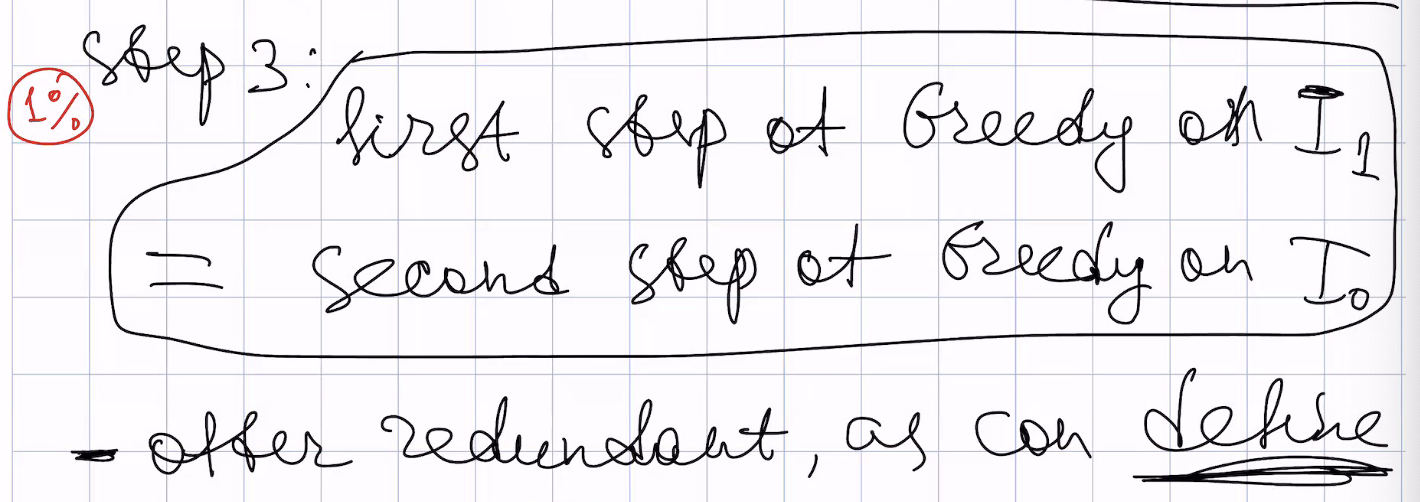 step 3:
1%
first step of Greedy on I₁
= second step of Greedy on I₀
- often redundant, as can define